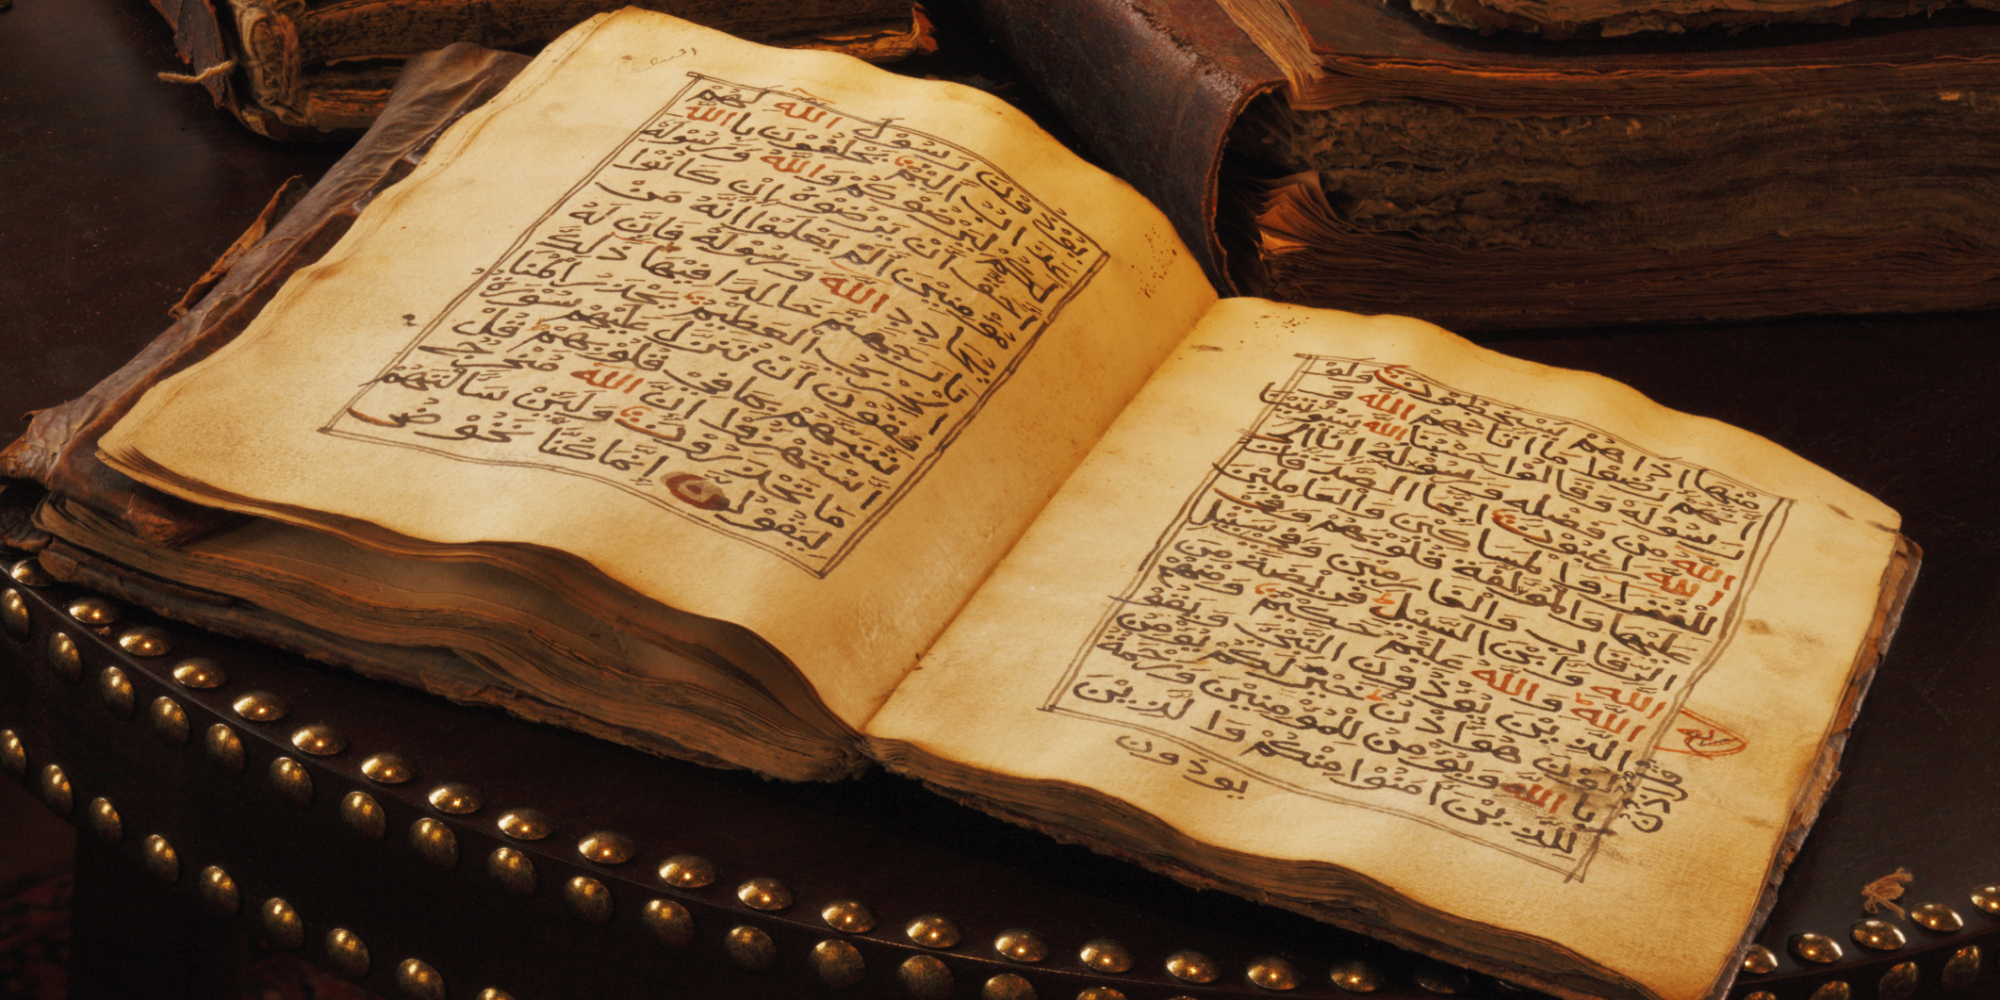 مِنْهَا اِذَا هُمْ يَسْخَطُونَ وَلَوْ
اَنَّهُمْ رَضُوا مَا اٰتَاهُمُ اللّٰهُ وَ
رَسُولُهُ وَقَالُوا حَسْبُنَا اللّٰهُ سَيُؤْتِينَا
اللّٰهُ مِنْ فَضْلِهِ وَرَسُولُهُ اِنَّا اِلَى
اللّٰهِ رَاغِبُونَ اِنَّمَا الصَّدَقَاتُ
لِلْفُقَرَاءِ وَالْمَسَاكِينِ وَالْعَامِلِينَ
عَلَيْهَا وَالْمُؤَلَّفَةِ قُلُوبُهُمْ وَفِي
الرِّقَابِ وَالْغَارِمِينَ وَفِي سَبِيلِ
اللّٰهِ وَابْنِ السَّبِيلِ فَرِيضَةً مِنَ
اللّٰهِ وَاللّٰهُ عَلِيمٌ حَكِيمٌ وَمِنْهُمُ
الَّذِينَ يُؤْذُونَ النَّبِيَّ وَيَقُولُو
نَ هُوَ اُذُنٌ قُلْ اُذُنُ خَيْرٍ لَكُمْ يُؤْمِنُ
بِاللّٰهِ وَيُؤْمِنُ لِلْمُؤْمِنِينَ وَرَحْمَةٌ
لِلَّذِينَ اٰمَنُوا مِنْكُمْ وَالَّذِينَ
يوذون
يُؤْذُونَ رَسُولَ اللّٰهِ لَهُمْ
عَذَابٌ اَلِيمٌ يَحْلِفُونَ بِاللّٰهِ
لَكُمْ لِيُرْضُوكُمْ وَاللّٰهُ وَرَسُولُهُ
اَحَقُّ اَنْ يُرْضُوهُ اِنْ كَانُوا
مُؤْمِنِينَ اَلَمْ يَعْلَمُوا اَنَّهُ مَنْ
يُحَادِدِ اللّٰهَ وَرَسُولَهُ فَاَنَّ لَهُ
نَارَ جَهَنَّمَ خَالِدًا فِيهَا ذٰلِكَ
الْخِزْيُ الْعَظِيمُ يَحْذَرُ الْمُنَا
فِقُونَ اَنْ تُنَزَّلَ عَلَيْهِمْ سُورَةٌ
تُنَبِّئُهُمْ بِمَا فِي قُلُوبِهِمْ قُلِ
اسْتَهْزِءُوا اِنَّ اللّٰهَ مُخْرِجٌ
مَا تَحْذَرُونَ وَلَئِنْ سَاَلْتَهُمْ
لَيَقُولُنَّ اِنَّمَا كُنَّا نَخُوضُ